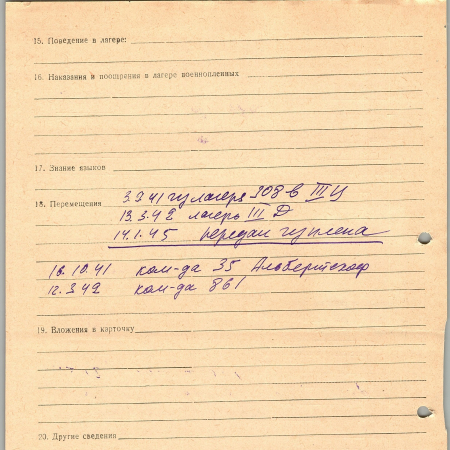 15. Поведение в лагере:
16. Наказания и поощрения в лагере военнопленных
17. Знание языков
18. Перемещения 3.9.41 из лагеря 308 в III Ц
13.3.42 лагерь III Д
14.1.45 передан из плена
16.10.41 ком-да 35 Альбертсхоф
12.3.42 ком-да 861
19. Вложения в карточку
20. Другие сведения